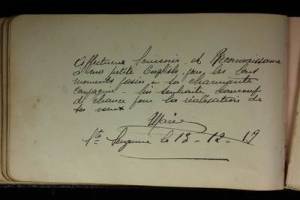 Affectueux Souvenir et Reconnaissance
à une petite English pour les bons
moments passés à sa charmante
compagnie - lui souhaite beaucoup
de chance pour la réalisation de
ses vœux
Marie
Ste le 13-12-19